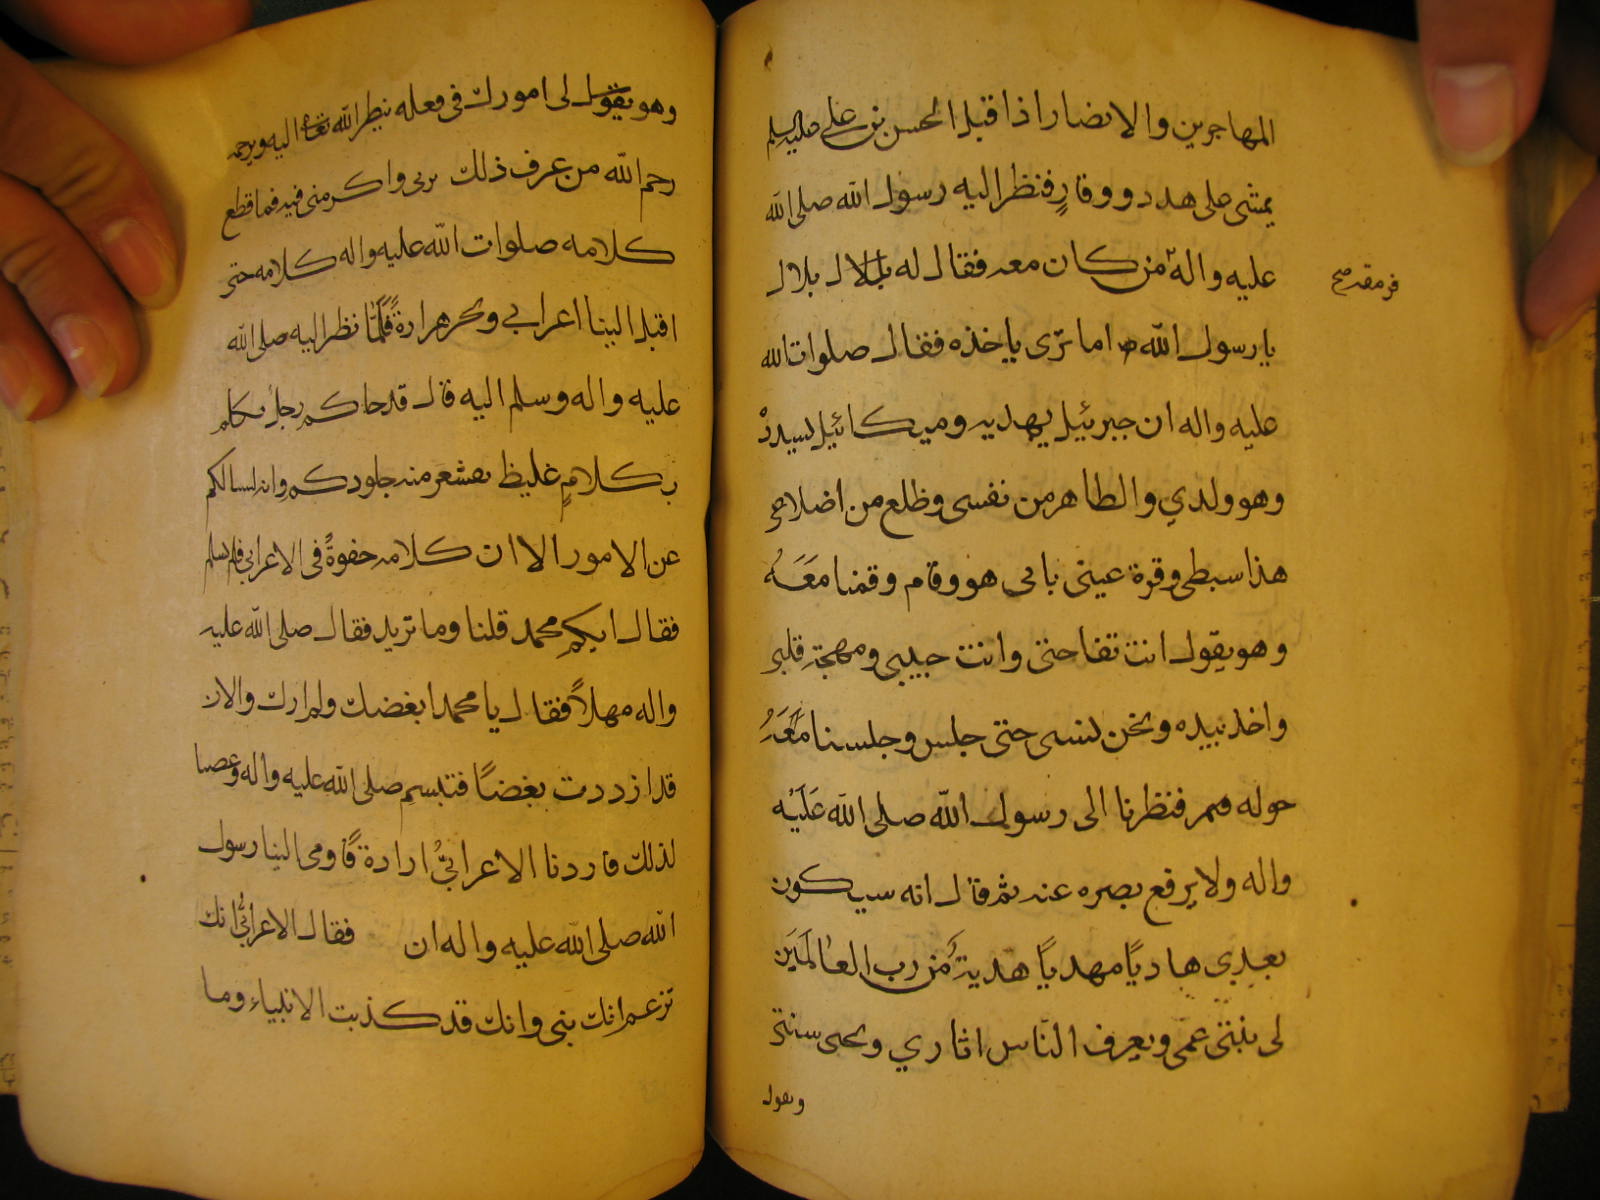 المهاجرين والانصار اذا قبل الحسن بن علي عليه السلم
يمشى على هدد ووقارٍ فنظر اليه رسول الله صلى الله
عليه واله من كان معه فقال له بلال بلال
فرمقه صح
يا رسول الله ص اما ترى ياخذه فقال صلوات الله
عليه واله ان جبرئيل يهديه وميكائيل يسدده
وهو ولدي والطاهر من نفسى وظلع من اضلاعى
هذا سبطى وقرة عينى بابى هو وقام وقمنا معَهُ
وهو يقول انت تفاحتى وانت حبيبى ومهجة قلبى
واخذ بيده ونحن نمشى حتى جلس وجلسنا معَهُ
حوله فنظرنا الى رسول الله صلى الله عَلَيْه
واله ولا يرفع بصره عنه ثم قال انه سيكون
بعدى هاديًا مهديًا هديةً من رب العالمَين
لى ينبئ عنى ويعرف الناس اثاري ويحيى سنتى
ويقول
وهو يقول لى امورك فى فعله ينظر الله تعالى اليه ويرحمه
رحم الله من عرف ذلك بربى واكرمنى فيه فما قطع
كلامه صلوات الله عليه واله كلامه حتى
اقبل الينا اعرابي ويجر هرارةً فلمّا نظر اليه صلى الله
عليه واله وسلم اليه قال قد جاكم رجل يكلم
بكلامٍ غليظ يقشعر منه جلودكم وانه ليسالكم
عن الامور الا ان كلامه جفوةً فى الاعرابى فلم يسلم
فقال ايكم محمد قلنا وما تريد فقال صلى الله عليه
واله مهلاً فقال يا محمد ابغضك ولم ارك والان
قد ازددت بغضًا فتبسم صلى الله عليه واله وعصبا
لذلك فاردنا الاعرابيُ ارادةً فاومى الينا رسول
الله صلى الله عليه واله ان فقال الاعرابيُ انك
تزعم انك بنى وانك قد كذبت الانبياء وما